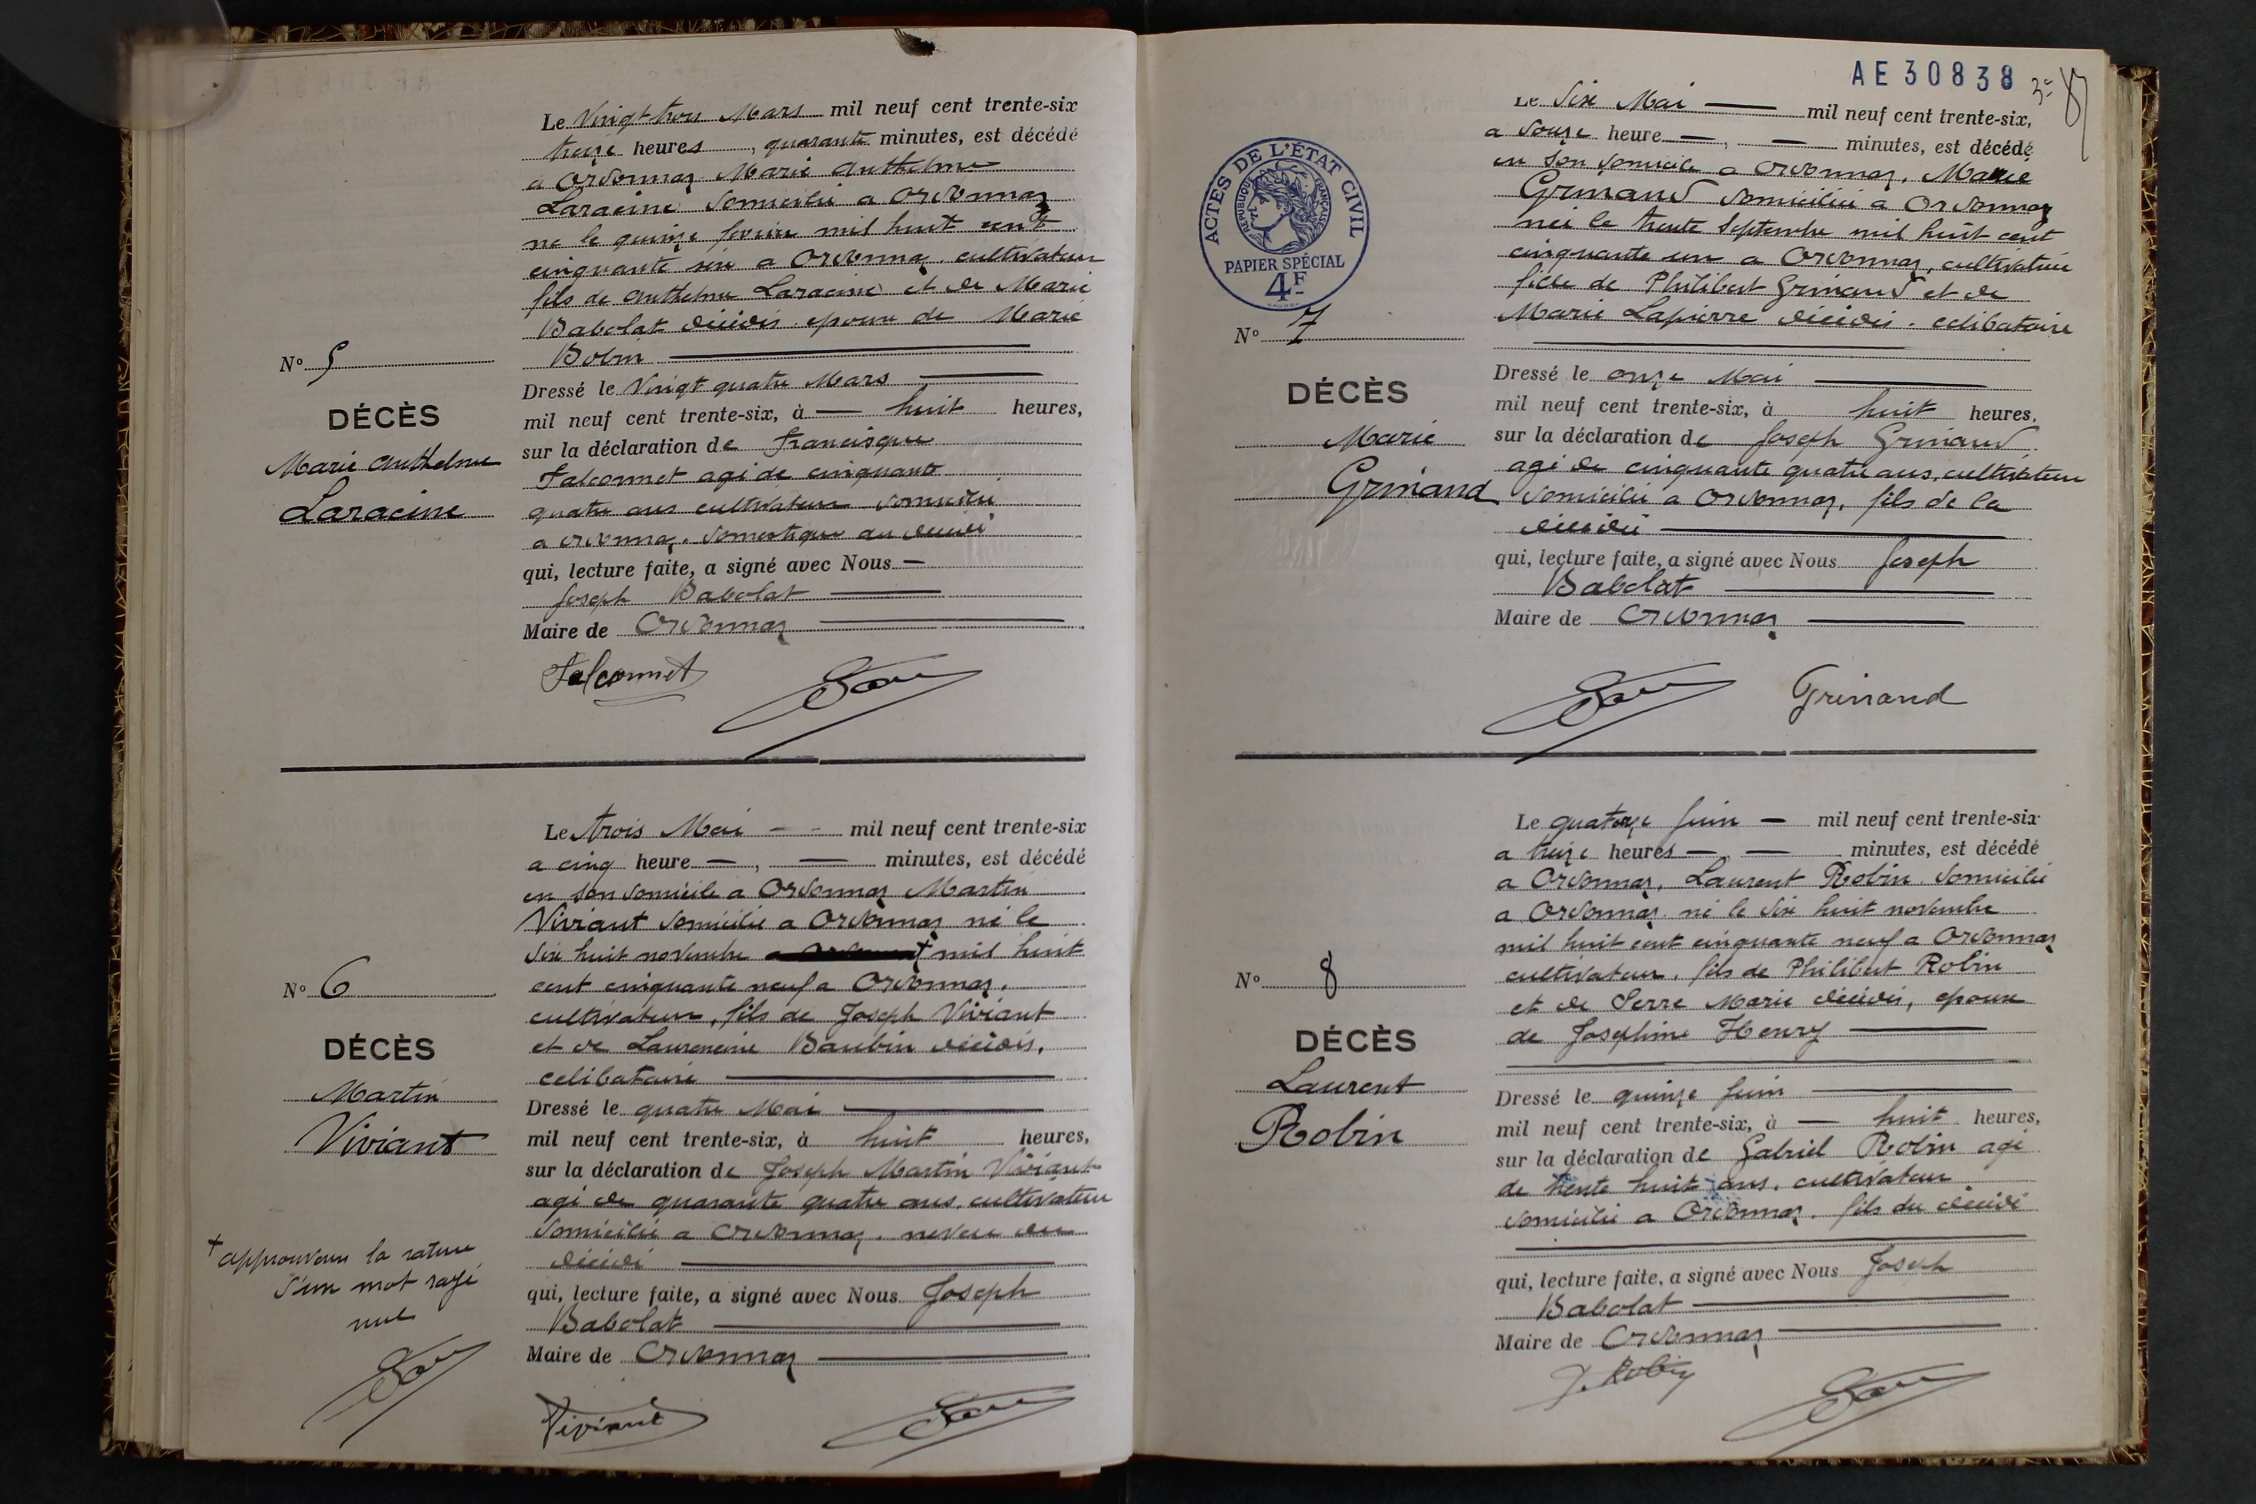 Le Vingt trois Mars mil neuf cent trente-six
treize heures, quarante minutes, est décédé
a Ordonnaz Marie Anthelme
Laracine domicilié a Ordonnaz
né le quinze fevrier mil huit cent
cinquante six a Ordonnaz. cultivateur
fils de Anthelme Laracine et de Marie
Babolat décédés. epoux de Marie
Bolon
Nº 5
DÉCÈS
Marie Anthelme
Laracine
Dressé le Vingt quatre Mars
mil neuf cent trente-six, à huit heures,
sur la déclaration de Francisque
Falconnet agé de cinquante
quatre ans cultivateur domicilié
a Ordonnaz. domestique du décédé
qui, lecture faite, a signé avec Nous
Joseph Babolat
Maire de Ordonnaz
Falconnet
Le trois Mai mil neuf cent trente-six
a cinq heure, minutes, est décédé
en son domicile a Ordonnaz Martin
Viviant domicilié a Ordonnaz né le
dix huit novembre + mil huit
cent cinquante neuf a Ordonnaz.
cultivateur, fils de Joseph Viviant
et de Laurencine Baubin décédés.
celibataire
Nº 6
DÉCÈS
Martin
Viviant
Dressé le quatre Mai
mil neuf cent trente-six, à huit heures,
sur la déclaration de Joseph Martin Viviant
agé de quarante quatre ans. cultivateur
domicilié a Ordonnaz. neveu du
décédé
qui, lecture faite, a signé avec Nous Joseph
Babolat
Maire de Ordonnaz
+ approuvons la rature
d'un mot rayé
nul
Viviant
AE 30838
Le Six Mai mil neuf cent trente-six,
a douze heure, minutes, est décédé
en son domicile a Ordonnaz. Marie
Grinand domiciliée a Ordonnaz
née le trente Septembre mil huit cent
cinquante un a Ordonnaz, cultivatrice
fille de Philibert Grinand et de
Marie Lapierre décédés. celibataire
ACTES DE L'ÉTAT CIVIL
RÉPUBLIQUE FRANÇAISE
PAPIER SPÉCIAL
4F
Nº 7
DÉCÈS
Marie
Grinand
Dressé le onze Mai
mil neuf cent trente-six, à huit heures,
sur la déclaration de Joseph Grinand
agé de cinquante quatre ans, cultivateur
domicilié a Ordonnaz, fils de la
décédée
qui, lecture faite, a signé avec Nous Joseph
Babolat
Maire de Ordonnaz
Grinand
Le quatorze Juin mil neuf cent trente-six
a treize heures, minutes, est décédé
a Ordonnaz, Laurent Robin domicilié
a Ordonnaz né le dix huit novembre
mil huit cent cinquante neuf a Ordonnaz
cultivateur, fils de Philibert Robin
et de Serre Marie décédés, epoux
de Josephine Henry
Nº 8
DÉCÈS
Laurent
Robin
Dressé le quinze Juin
mil neuf cent trente-six, à huit heures,
sur la déclaration de Gabriel Robin agé
de trente huit ans. cultivateur
domicilié a Ordonnaz. fils du décédé
qui, lecture faite, a signé avec Nous Joseph
Babolat
Maire de Ordonnaz
Robin